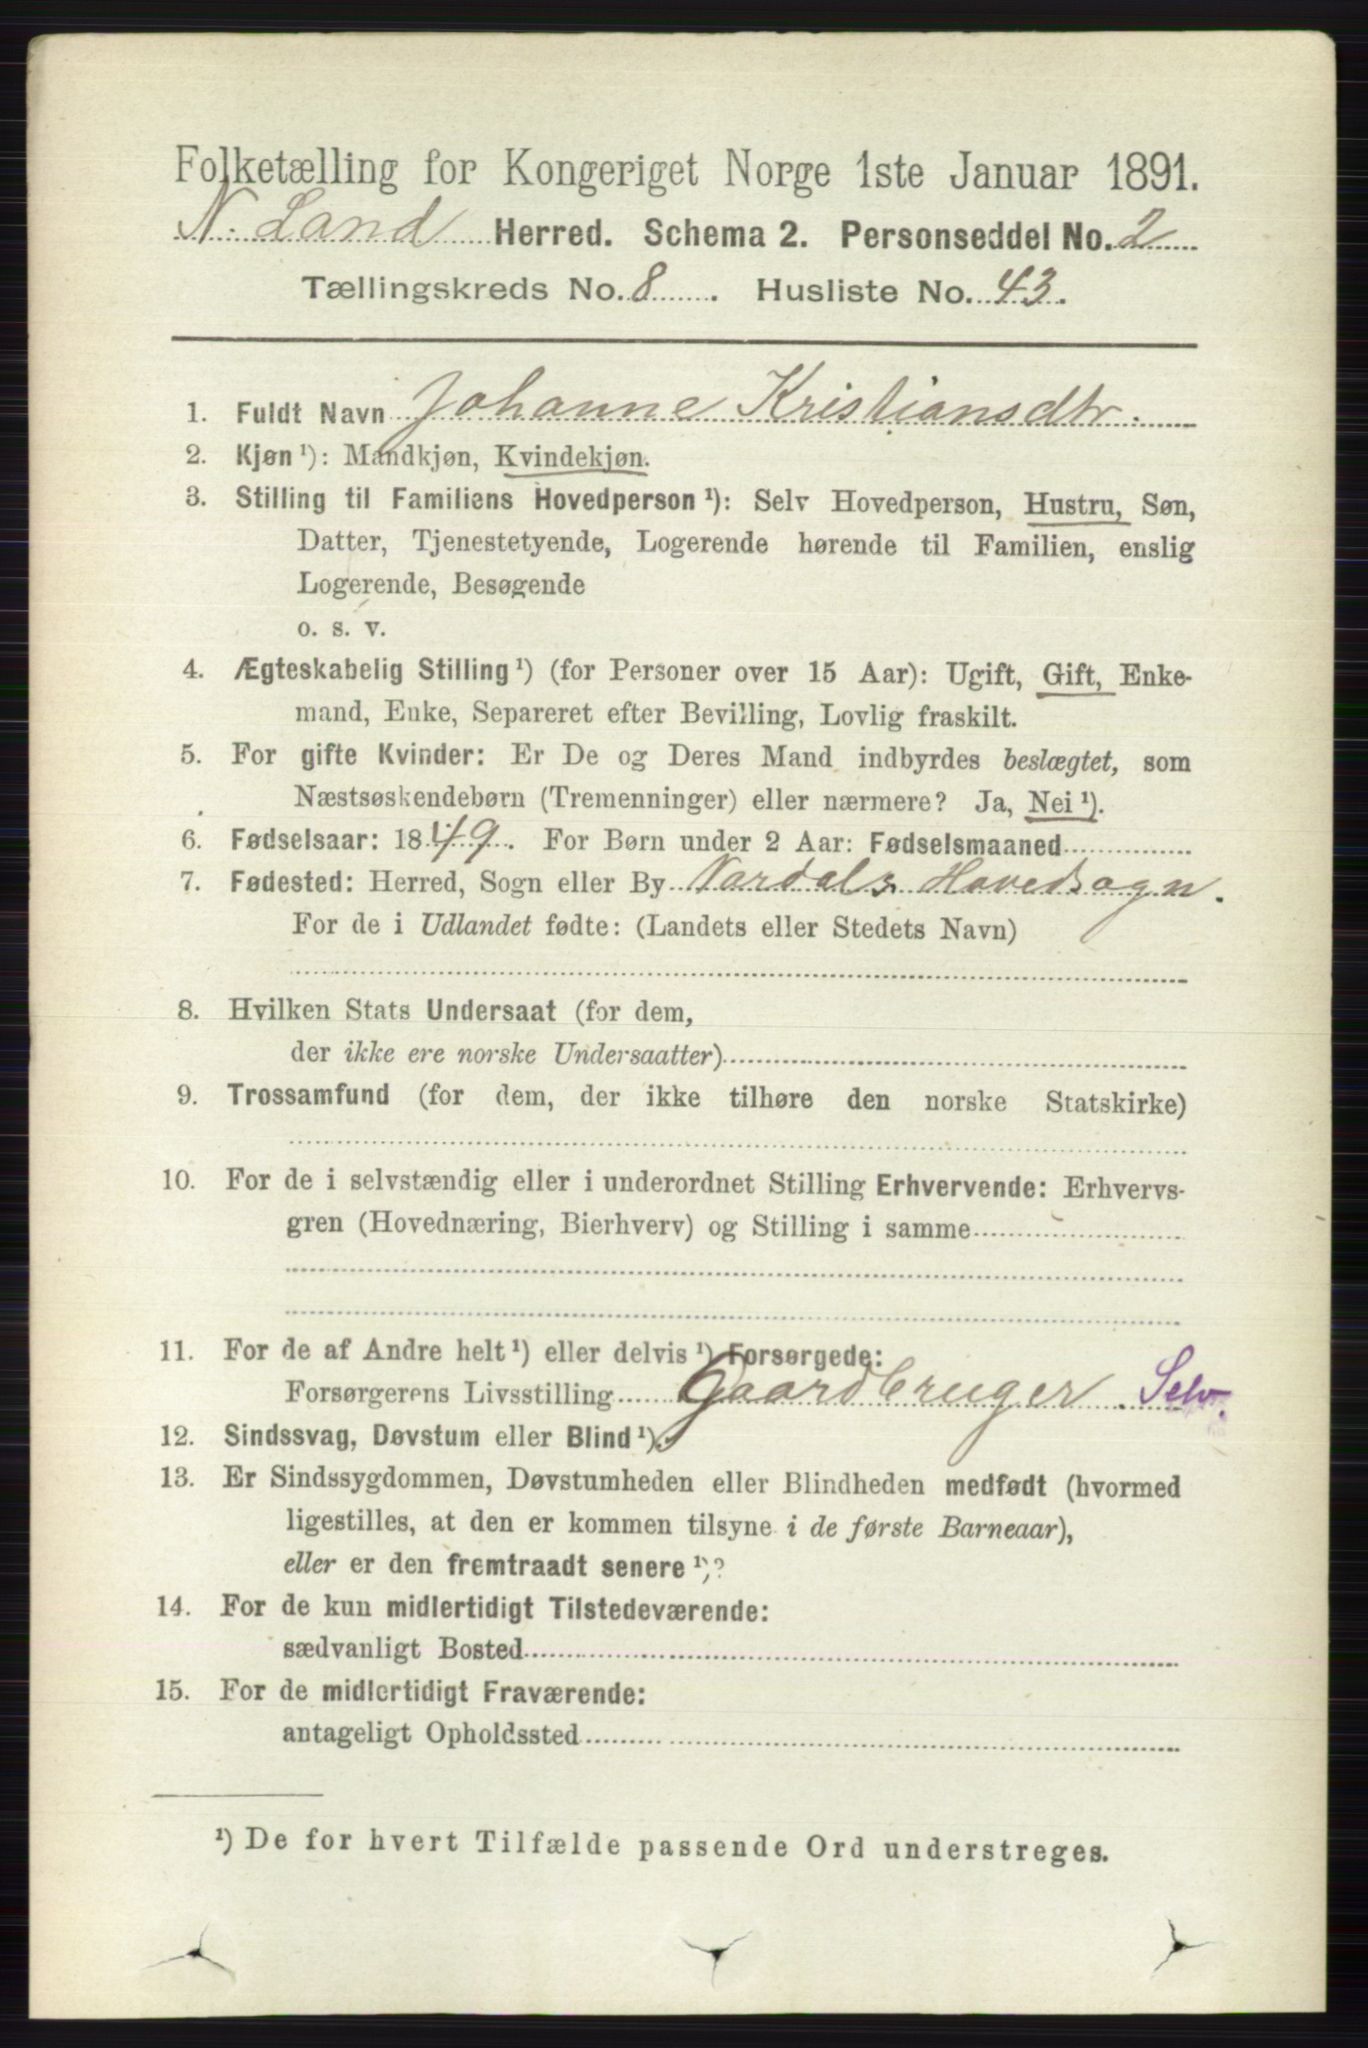 Folketælling for Kongeriget Norge 1ste Januar 1891.
N. Land Herred. Schema 2. Personseddel No. 2
Tællingskreds No. 8. Husliste No. 43.
1. Fuldt Navn Johanne Kristiansdtr.
2. Kjøn ¹): Mandkjøn, Kvindekjøn.
3. Stilling til Familiens Hovedperson ¹): Selv Hovedperson, Hustru, Søn,
Datter, Tjenestetyende, Logerende hørende til Familien, enslig
Logerende, Besøgende
o. s. v.
4. Ægteskabelig Stilling ¹) (for Personer over 15 Aar): Ugift, Gift, Enke-
mand, Enke, Separeret efter Bevilling, Lovlig fraskilt.
5. For gifte Kvinder: Er De og Deres Mand indbyrdes beslægtet, som
Næstsøskendebørn (Tremenninger) eller nærmere? Ja, Nei ¹).
6. Fødselsaar: 1849. For Børn under 2 Aar: Fødselsmaaned
7. Fødested: Herred, Sogn eller By Nordals Hovedsogn.
For de i Udlandet fødte: (Landets eller Stedets Navn)
8. Hvilken Stats Undersaat (for dem,
der ikke ere norske Undersaatter)
9. Trossamfund (for dem, der ikke tilhøre den norske Statskirke)
10. For de i selvstændig eller i underordnet Stilling Erhvervende: Erhvervs-
gren (Hovednæring, Bierhverv) og Stilling i samme
11. For de af Andre helt ¹) eller delvis ¹) Forsørgede:
Forsørgerens Livsstilling Gaardbruger. Selv.
12. Sindssvag, Døvstum eller Blind ¹).
13. Er Sindssygdommen, Døvstumheden eller Blindheden medfødt (hvormed
ligestilles, at den er kommen tilsyne i de første Barneaar),
eller er den fremtraadt senere ¹)?
14. For de kun midlertidigt Tilstedeværende:
sædvanligt Bosted
15. For de midlertidigt Fraværende:
antageligt Opholdssted
¹) De for hvert Tilfælde passende Ord understreges.